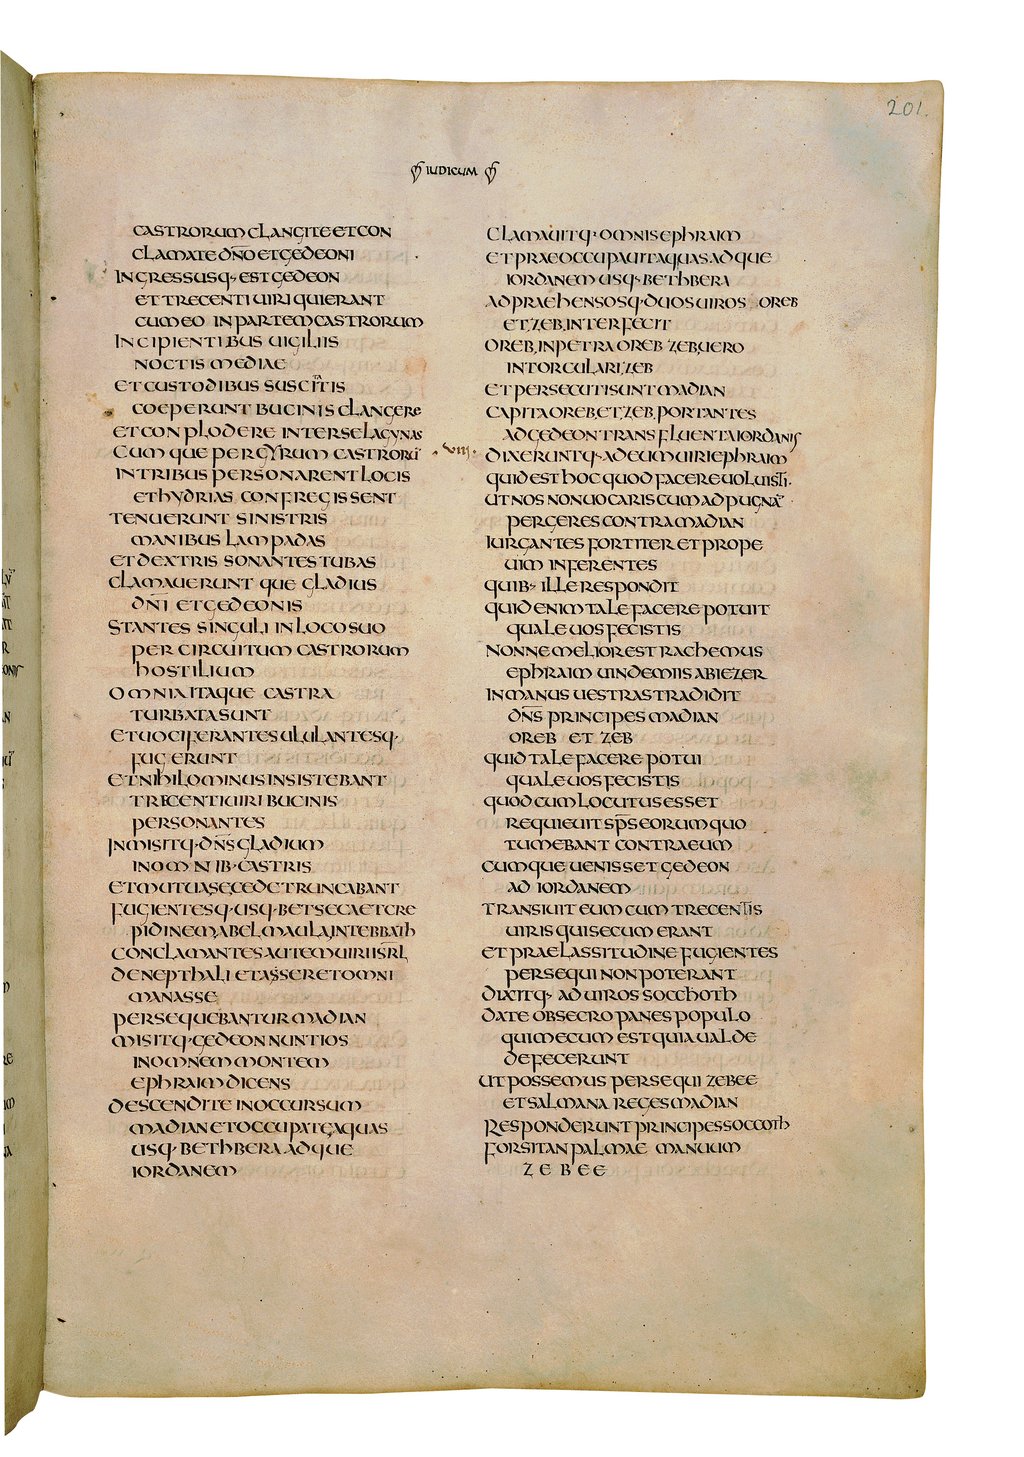 201.
IUDICUM
CASTRORUM CLANGITE ET CON
CLAMATE DÑO ET GEDEONI
INGRESSUSQ· EST GEDEON
ET TRECENTI UIRI QUI ERANT
CUM EO IN PARTEM CASTRORUM
INCIPIENTIBUS UIGILIIS
NOCTIS MEDIAE
ET CUSTODIBUS SUSCITATIS
COEPERUNT BUCINIS CLANGERE
ET CONPLODERE INTER SE LAGYNAS
CUMQUE PER GYRUM CASTRORŪ
IN TRIBUS PERSONARENT LOCIS
ET HYDRIAS CONFREGISSENT
TENUERUNT SINISTRIS
MANIBUS LAMPADAS
ET DEXTRIS SONANTES TUBAS
CLAMAUERUNTQUE GLADIUS
DÑI ET GEDEONIS
STANTES SINGULI IN LOCO SUO
PER CIRCUITUM CASTRORUM
HOSTILIUM
OMNIA ITAQUE CASTRA
TURBATA SUNT
ET UOCIFERANTES ULULANTESQ·
FUGERUNT
ET NIHILOMINUS INSISTEBANT
TRECENTI UIRI BUCINIS
PERSONANTES
INMISITQ· DÑS GLADIUM
IN OMNIB· CASTRIS
ET MUTUA SE CEDE TRUNCABANT
FUGIENTESQ· USQ· BETSECA ET CRE
PIDINEM ABELMAULA IN TEBBATH
CONCLAMANTES AUTEM UIRI ISRL
DE NEPTHALI ET ASSER ET OMNI
MANASSE
PERSEQUEBANTUR MADIAN
MISITQ· GEDEON NUNTIOS
IN OMNEM MONTEM
EPHRAIM DICENS
DESCENDITE IN OCCURSUM
MADIAN ET OCCUPATE AQUAS
USQ· BETHBERA ADQUE
IORDANEM
CLAMAUITQ· OMNIS EPHRAIM
ET PRAEOCCUPAUIT AQUAS ADQUE
IORDANEM USQ· BETHBERA
ADPRAEHENSOSQ· DUOS UIROS OREB
ET ZEB INTERFECIT
OREB IN PETRA OREB ZEB UERO
IN TORCULARI ZEB
ET PERSECUTI SUNT MADIAN
CAPITA OREB ET ZEB PORTANTES
AD GEDEON TRANS FLUENTA IORDANIS
·VIII· DIXERUNTQ· AD EUM UIRI EPHRAIM
QUID EST HOC QUOD FACERE UOLUISTI·
UT NOS NON UOCARIS CUM AD PUGNĀ
PERGERES CONTRA MADIAN
IURGANTES FORTITER ET PROPE
UIM INFERENTES
QUIB· ILLE RESPONDIT
QUID ENIM TALE FACERE POTUIT
QUALE UOS FECISTIS
NONNE MELIOR EST RACHEMUS
EPHRAIM UINDEMIIS ABIEZER
IN MANUS UESTRAS TRADIDIT
DÑS PRINCIPES MADIAN
OREB ET ZEB
QUID TALE FACERE POTUI
QUALE UOS FECISTIS
QUOD CUM LOCUTUS ESSET
REQUIEUIT SPS EORUM QUO
TUMEBANT CONTRA EUM
CUMQUE UENISSET GEDEON
AD IORDANEM
TRANSIUIT EUM CUM TRECENTIS
UIRIS QUI SECUM ERANT
ET PRAE LASSITUDINE FUGIENTES
PERSEQUI NON POTERANT
DIXITQ· AD UIROS SOCCHOTH
DATE OBSECRO PANES POPULO
QUI MECUM EST QUIA UALDE
DEFECERUNT
UT POSSEMUS PERSEQUI ZEBEE
ET SALMANA REGES MADIAN
RESPONDERUNT PRINCIPES SOCCOTH
FORSITAN PALMAE MANUUM
ZEBEE